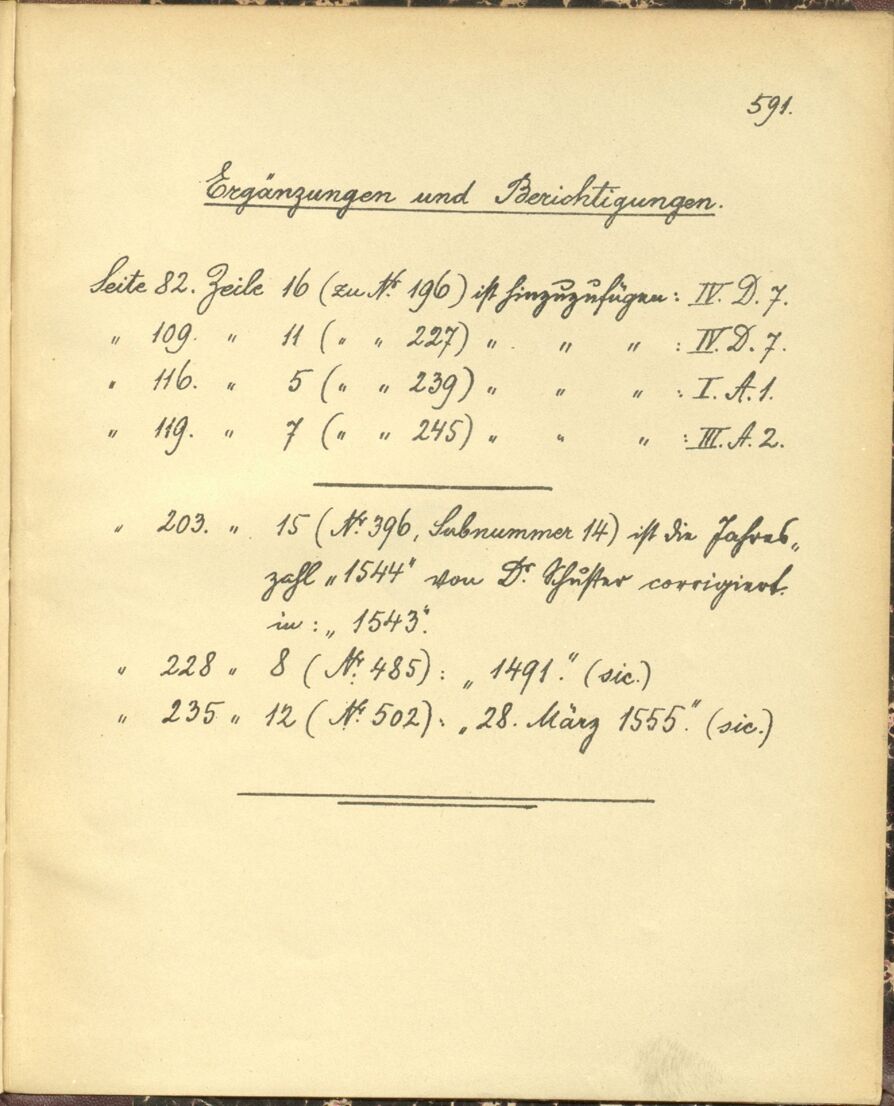 591.
Ergänzungen und Berichtigungen.
Seite 82. Zeile 16 (zu Nr. 196) ist hinzuzufügen: IV. D. 7.
" 109. " 11 (" " 227) " " " : IV. D. 7.
" 116. " 5 (" " 239) " " " : I. A. 1.
" 119. " 7 (" " 245) " " " : III. A. 2.
" 203. " 15 (Nr. 396, Subnummer 14) ist die Jahres„
zahl „1544“ von Dr. Schuster corrigiert
in: „1543“.
" 228 " 8 (Nr. 485): „1491.“ (sic.)
" 235 " 12 (Nr. 502): „28. März 1555.“ (sic.)